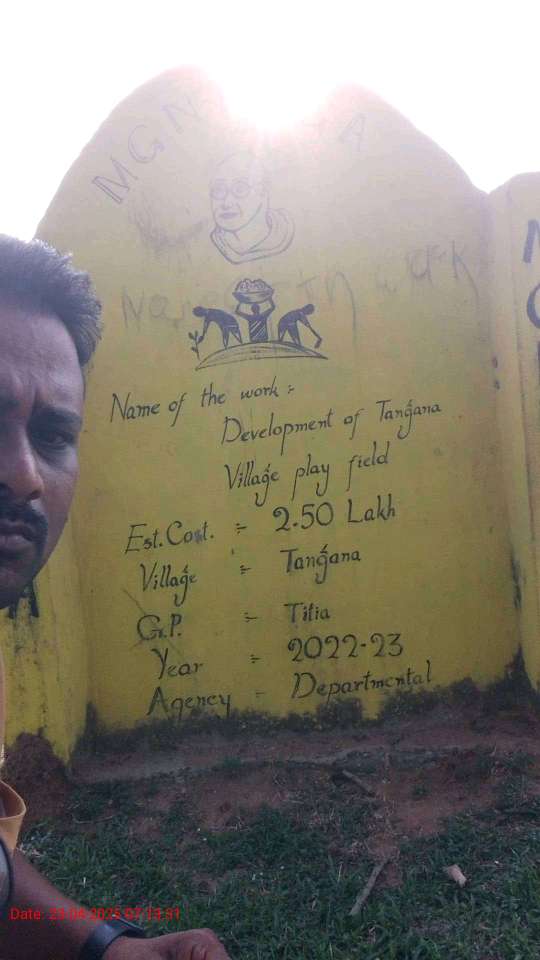 MGN A
Name of the work :-
Development of Tangana
Village play field
Est. Cost. :- 2.50 Lakh
Village :- Tangana
G.P. :- Titia
Year :- 2022-23
Agency - Departmental